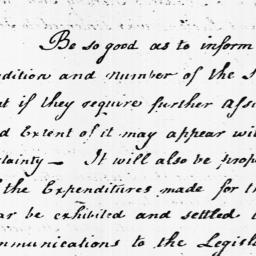 Be so good as to inform
dition and number of the
if they require further
d Extent of it may appear
tainty — It will also be
the Expenditures made for
be exhibited and settled
mmunications to the Legisl